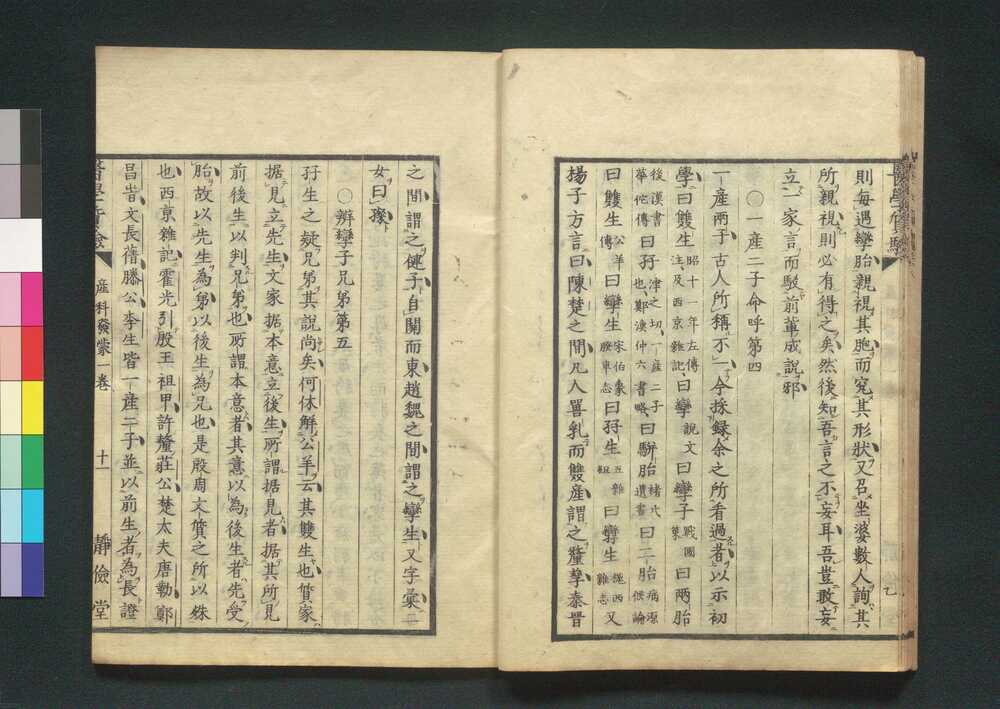 則毎遇孿胎親視其胞而究其形狀又召坐婆數人詢其
所親視則必有得之矣然後知吾言之不妄耳吾豈敢妄
立一家言而駁前輩成說邪
○一產二子命呼第四
一產兩子古人所稱不一今採録余之所看過者以示初
學曰雙生昭十一年左傳注及西京雜記曰孿說文曰孿子戰國策曰兩胎
後漢書華佗傳曰孖津之切一產二子也鄭漁仲六書略曰駢胎褚氏遺書曰二胎病源候論
曰雙生公羊傳曰孿生曰孖生五雜組曰孿生又
揚子方言曰陳楚之間凡人嘼乳而雙產謂之釐孳秦晉
之間謂之健子自關而東趙魏之間謂之孿生又字彙一
女曰
○辨孿子兄弟第五
孖生之疑兄弟其說尚矣何休解公羊云其雙生也質家
据見立先生文家据本意立後生所謂据見者据其所見
前後生以判兄弟也所謂本意者其意以為後生者先受
胎故以先生為弟以後生為兄也是殷周文質之所以殊
也西京雜記霍光引殷王祖甲許釐莊公楚大夫唐勒鄭
昌旹文長蒨滕公李生皆一產二子並以前生者為長證
產科發蒙一卷
十一
靜儉堂